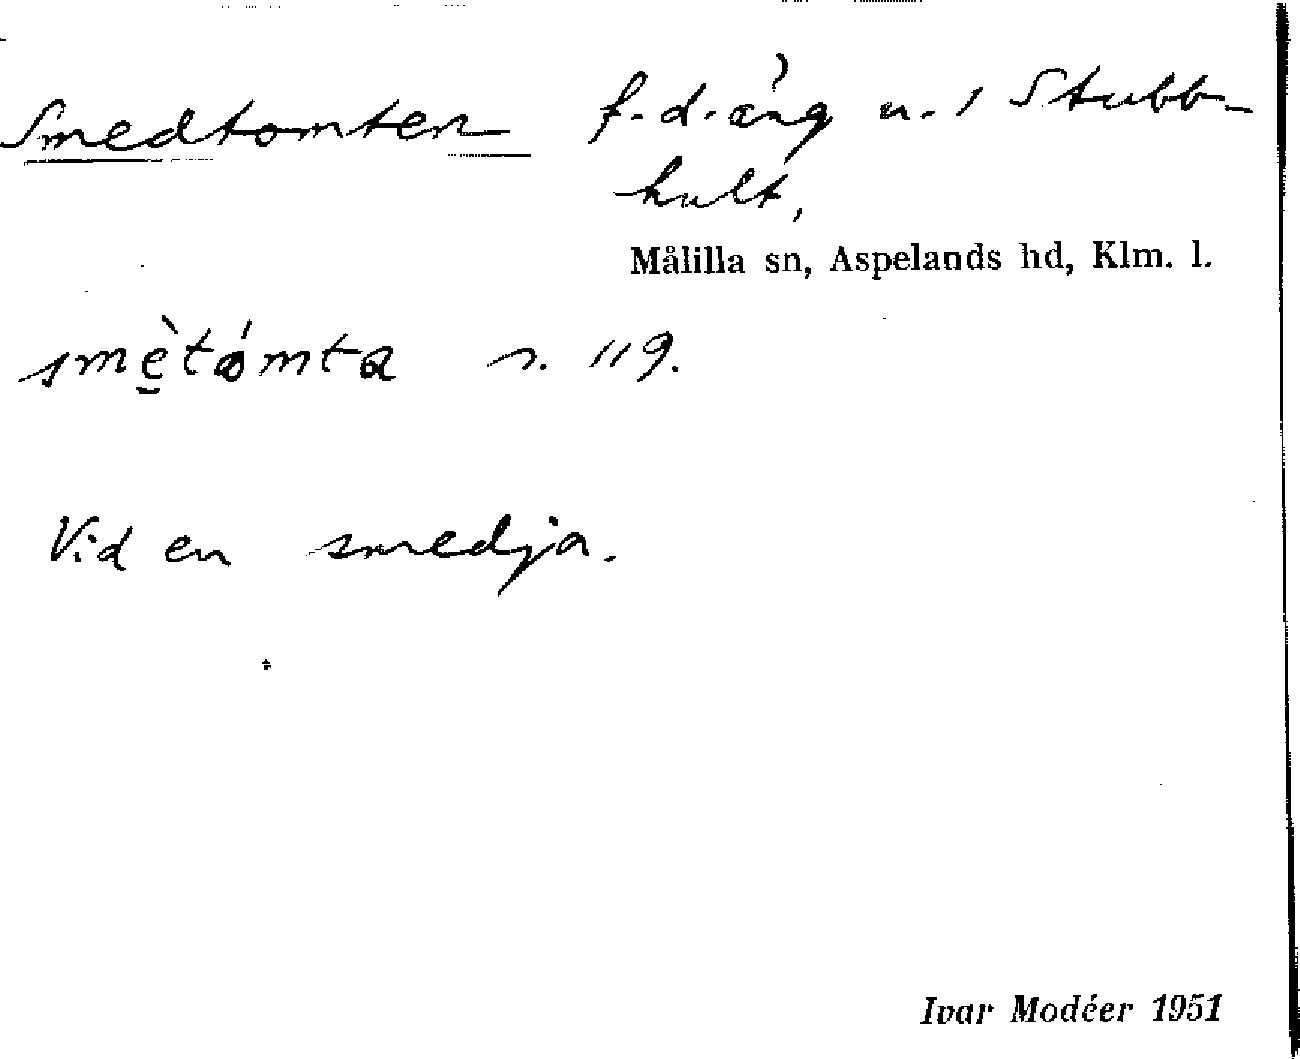 Smedtomten f.d. äng u. 1 Stubb-
hult,
Målilla sn, Aspelands hd, Klm. l.
smè̱tómta s. 119.
Vid en smedja.
Ivar Modéer 1951